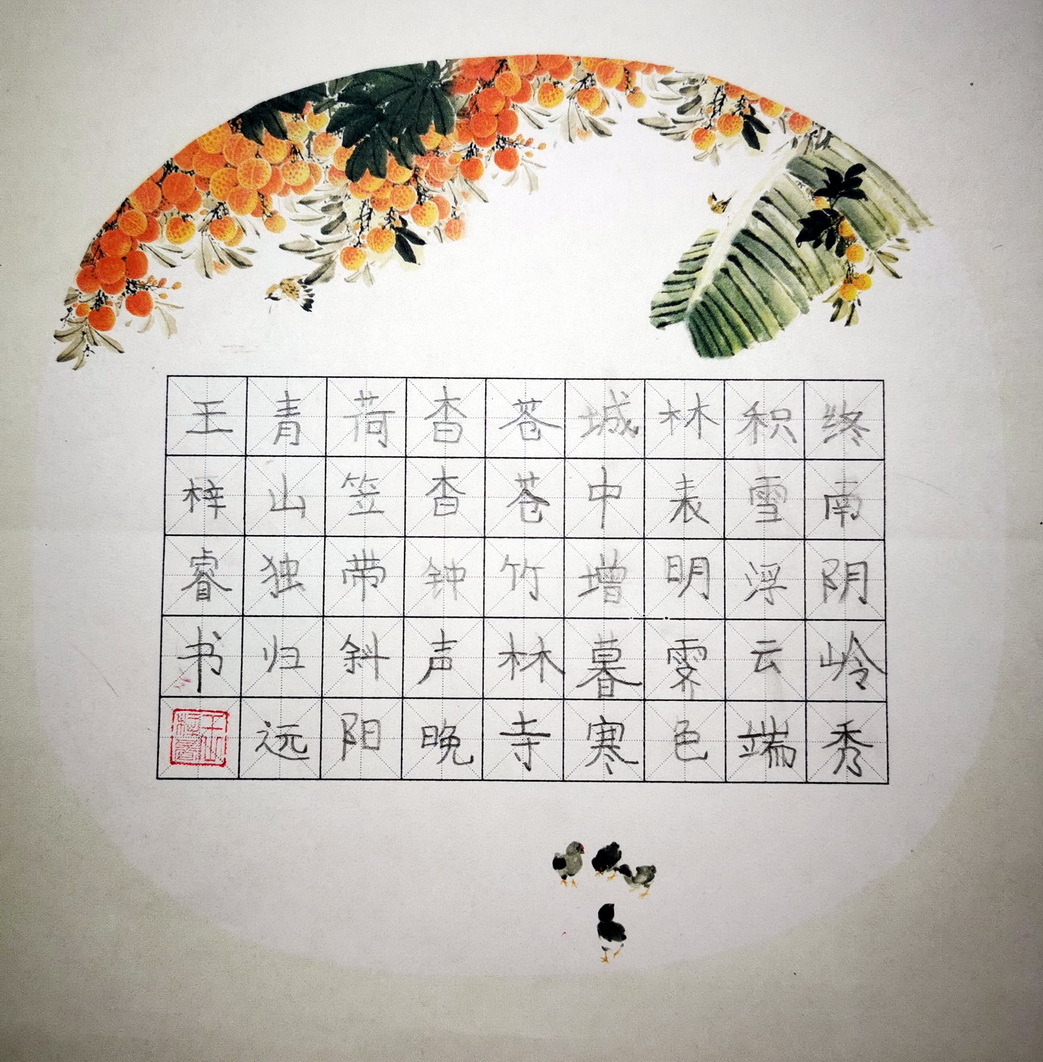 终南阴岭秀
积雪浮云端
林表明霁色
城中增暮寒
苍苍竹林寺
杳杳钟声晚
荷笠带斜阳
青山独归远
王梓睿书